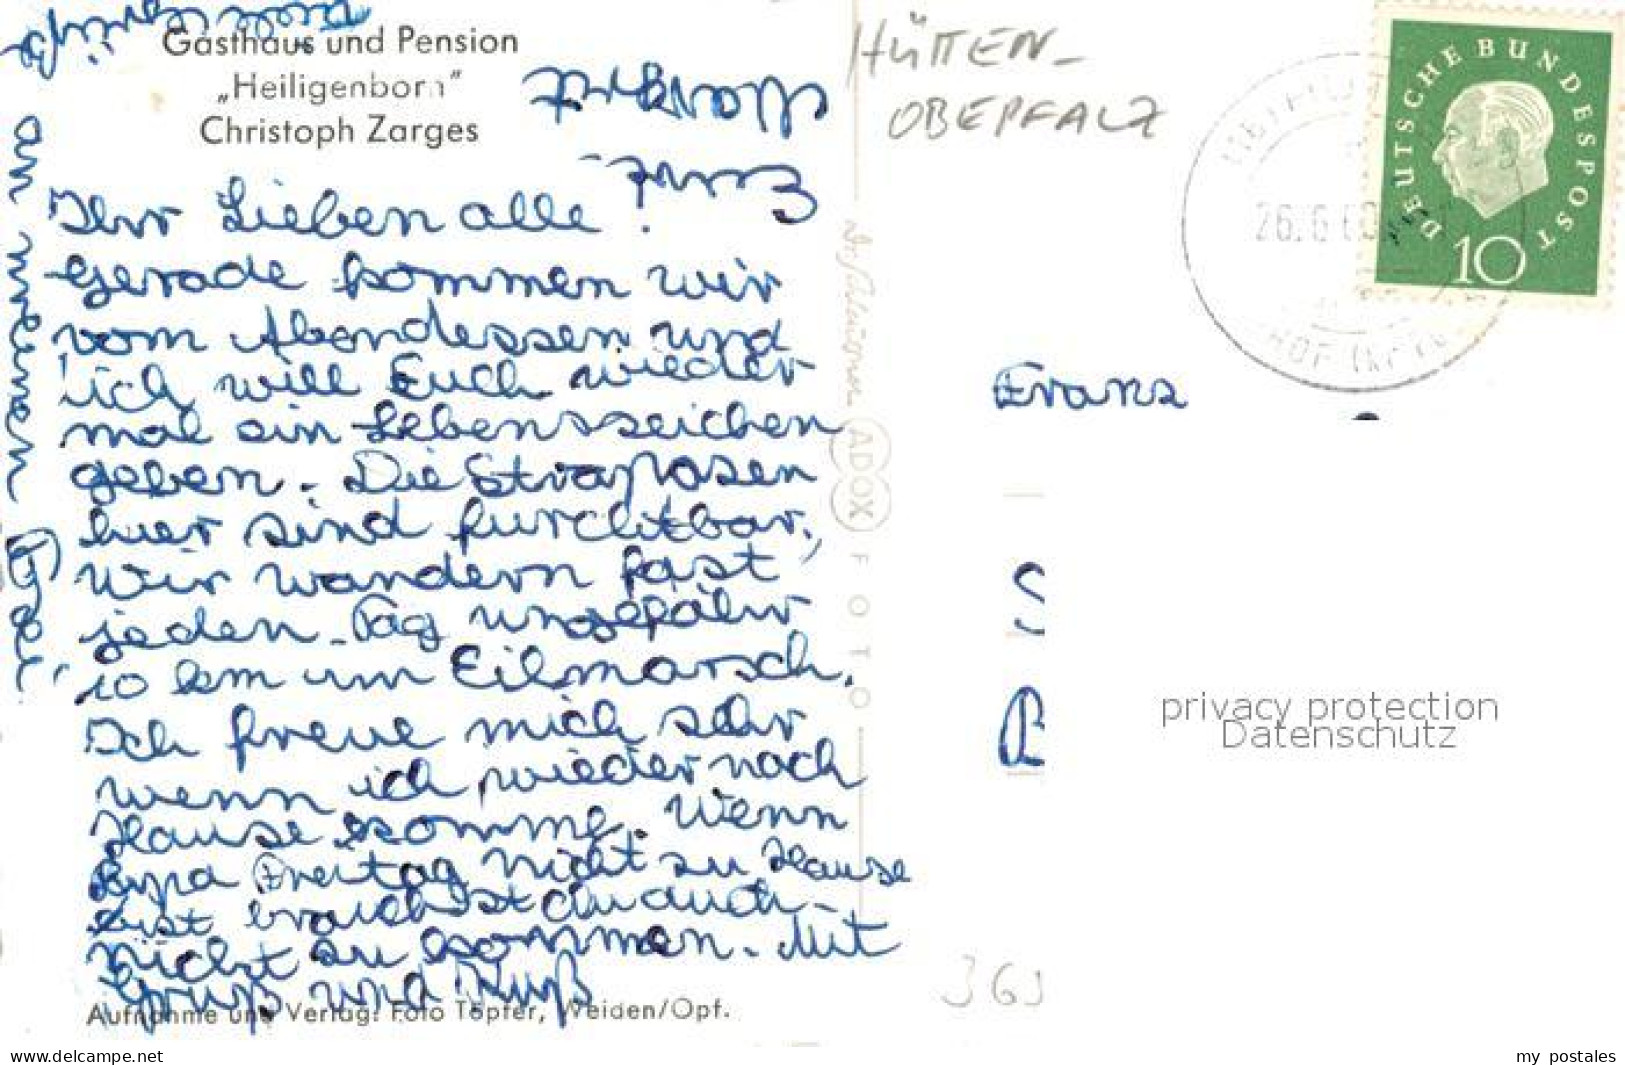 Gasthaus und Pension
„Heiligenborn"
Christoph Zarges
HÜTTEN-
OBERPFALZ
DEUTSCHE BUNDESPOST
10
26.6.60
HOF
Ihr Lieben alle!
Gerade kommen wir
vom Abendessen und
ich will Euch wieder
mal ein Lebenszeichen
geben. Die Strapasen
hier sind furchtbar,
wir wandern fast
jeden Tag ungefähr
10 km im Eilmarsch.
Ich freue mich sehr
wenn ich wieder nach
Hause komme. Wenn
Papa Freitag nicht zu Hause
ist brauchst du auch
nicht zu kommen. Mit
Gruß und Kuß
Viele Grüße
an
Margrit
ADOX FOTO
Franz
S
B
privacy protection
Datenschutz
363
Aufnahme und Verlag: Foto Töpfer, Weiden/Opf.
www.delcampe.net
my_postales